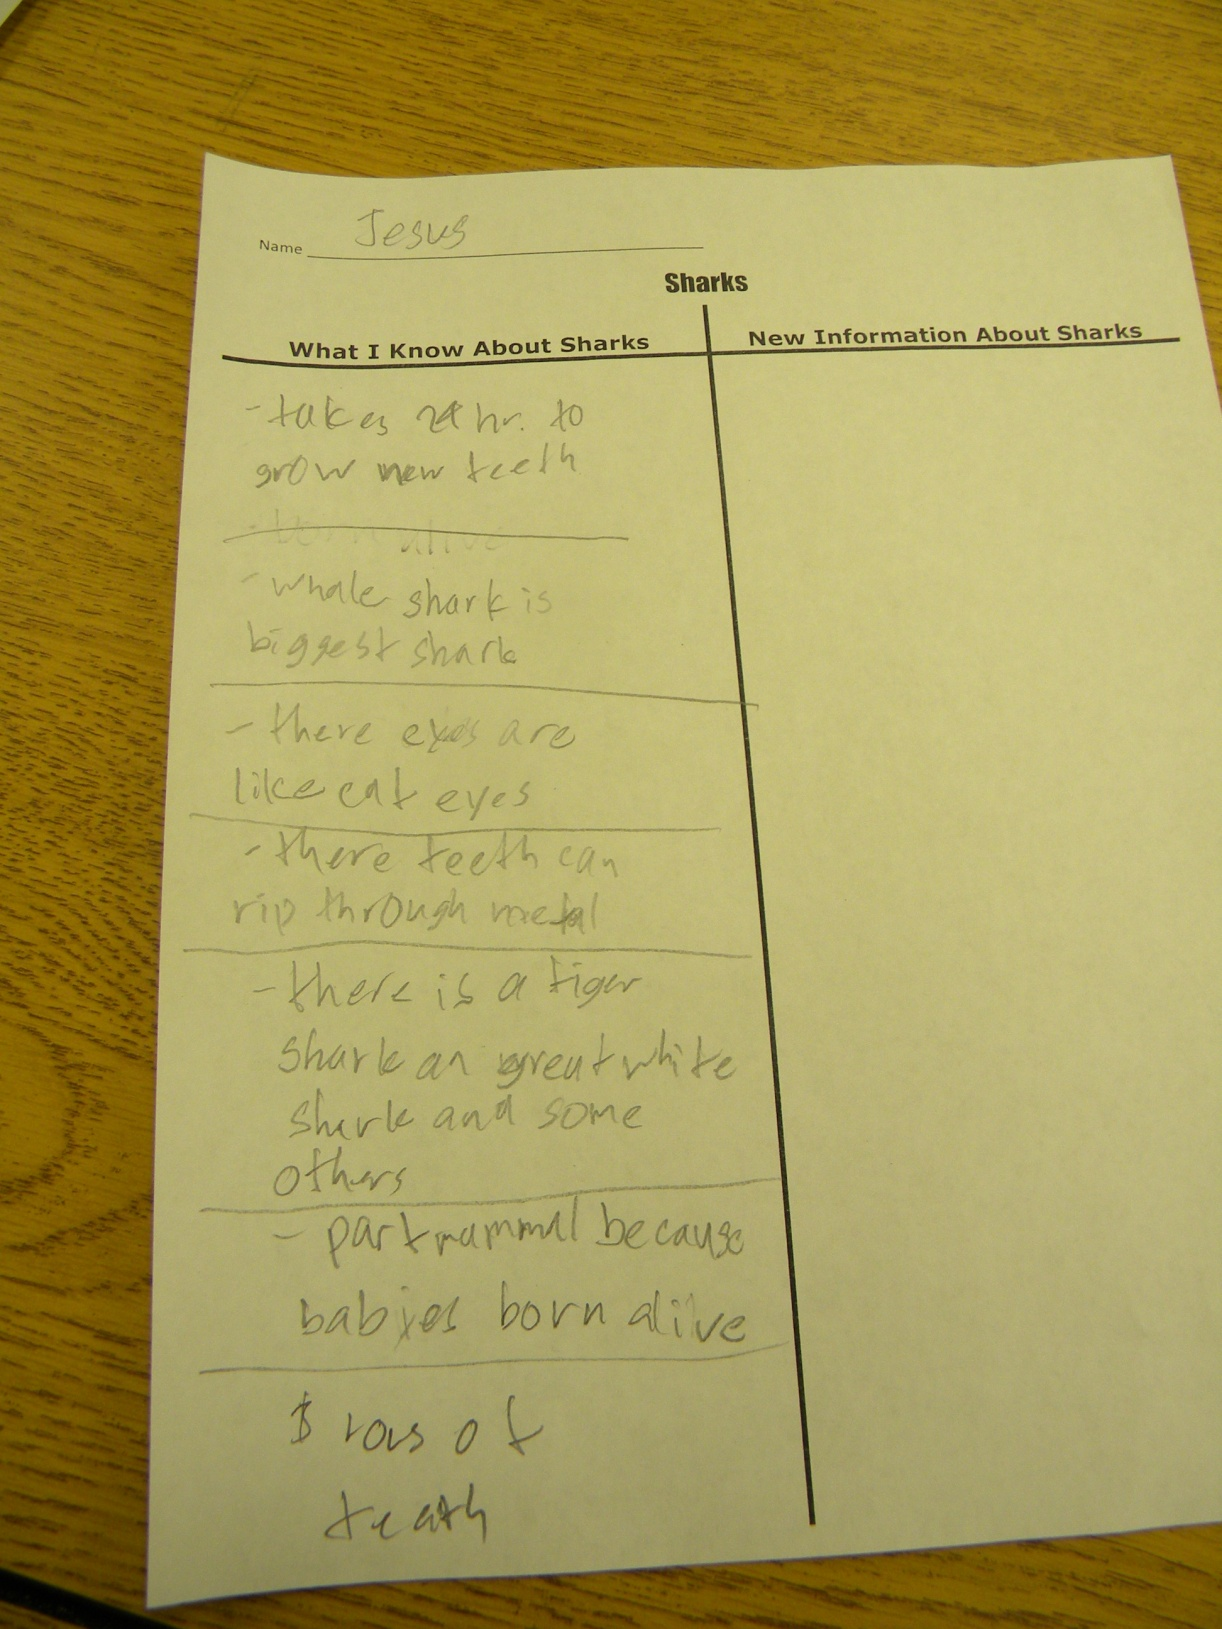 Name Jesus
Sharks
What I Know About Sharks
New Information About Sharks
- takes 24 hr. to
grow new teeth
- born alive
- whale shark is
biggest shark
- there eyes are
like cat eyes
- there teeth can
rip through metal
- there is a tiger
shark an great white
shark and some
others
- part mammal because
babies born alive
rows of
teath